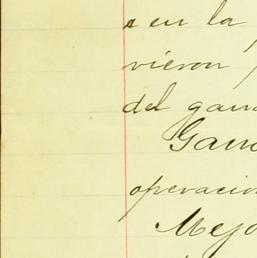 s en la
vieron
del gana
Gana
operacion
Mejo